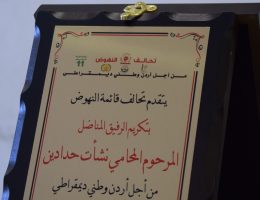 تحالف النهوض
من أجل أردن وطني ديمقراطي
يتقدم تحالف قائمة النهوض
بتكريم الرفيق المناضل
المرحوم المحامي نشأت حدادين
من أجل أردن وطني ديمقراطي